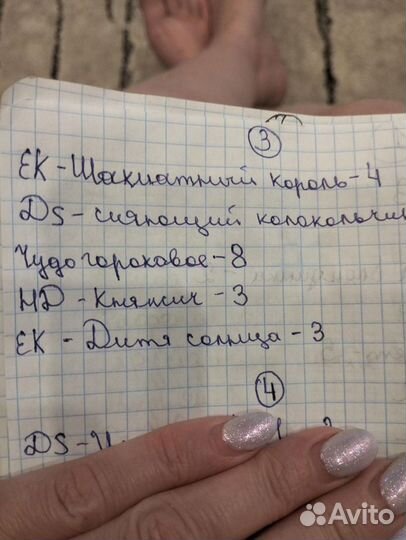 3
ЕК - Шахматный король - 4
DS - сияющий колокольчик
Чудо гороховое - 8
НД - Княжич - 3
ЕК - Дитя солнца - 3
4
DS - И
Avito